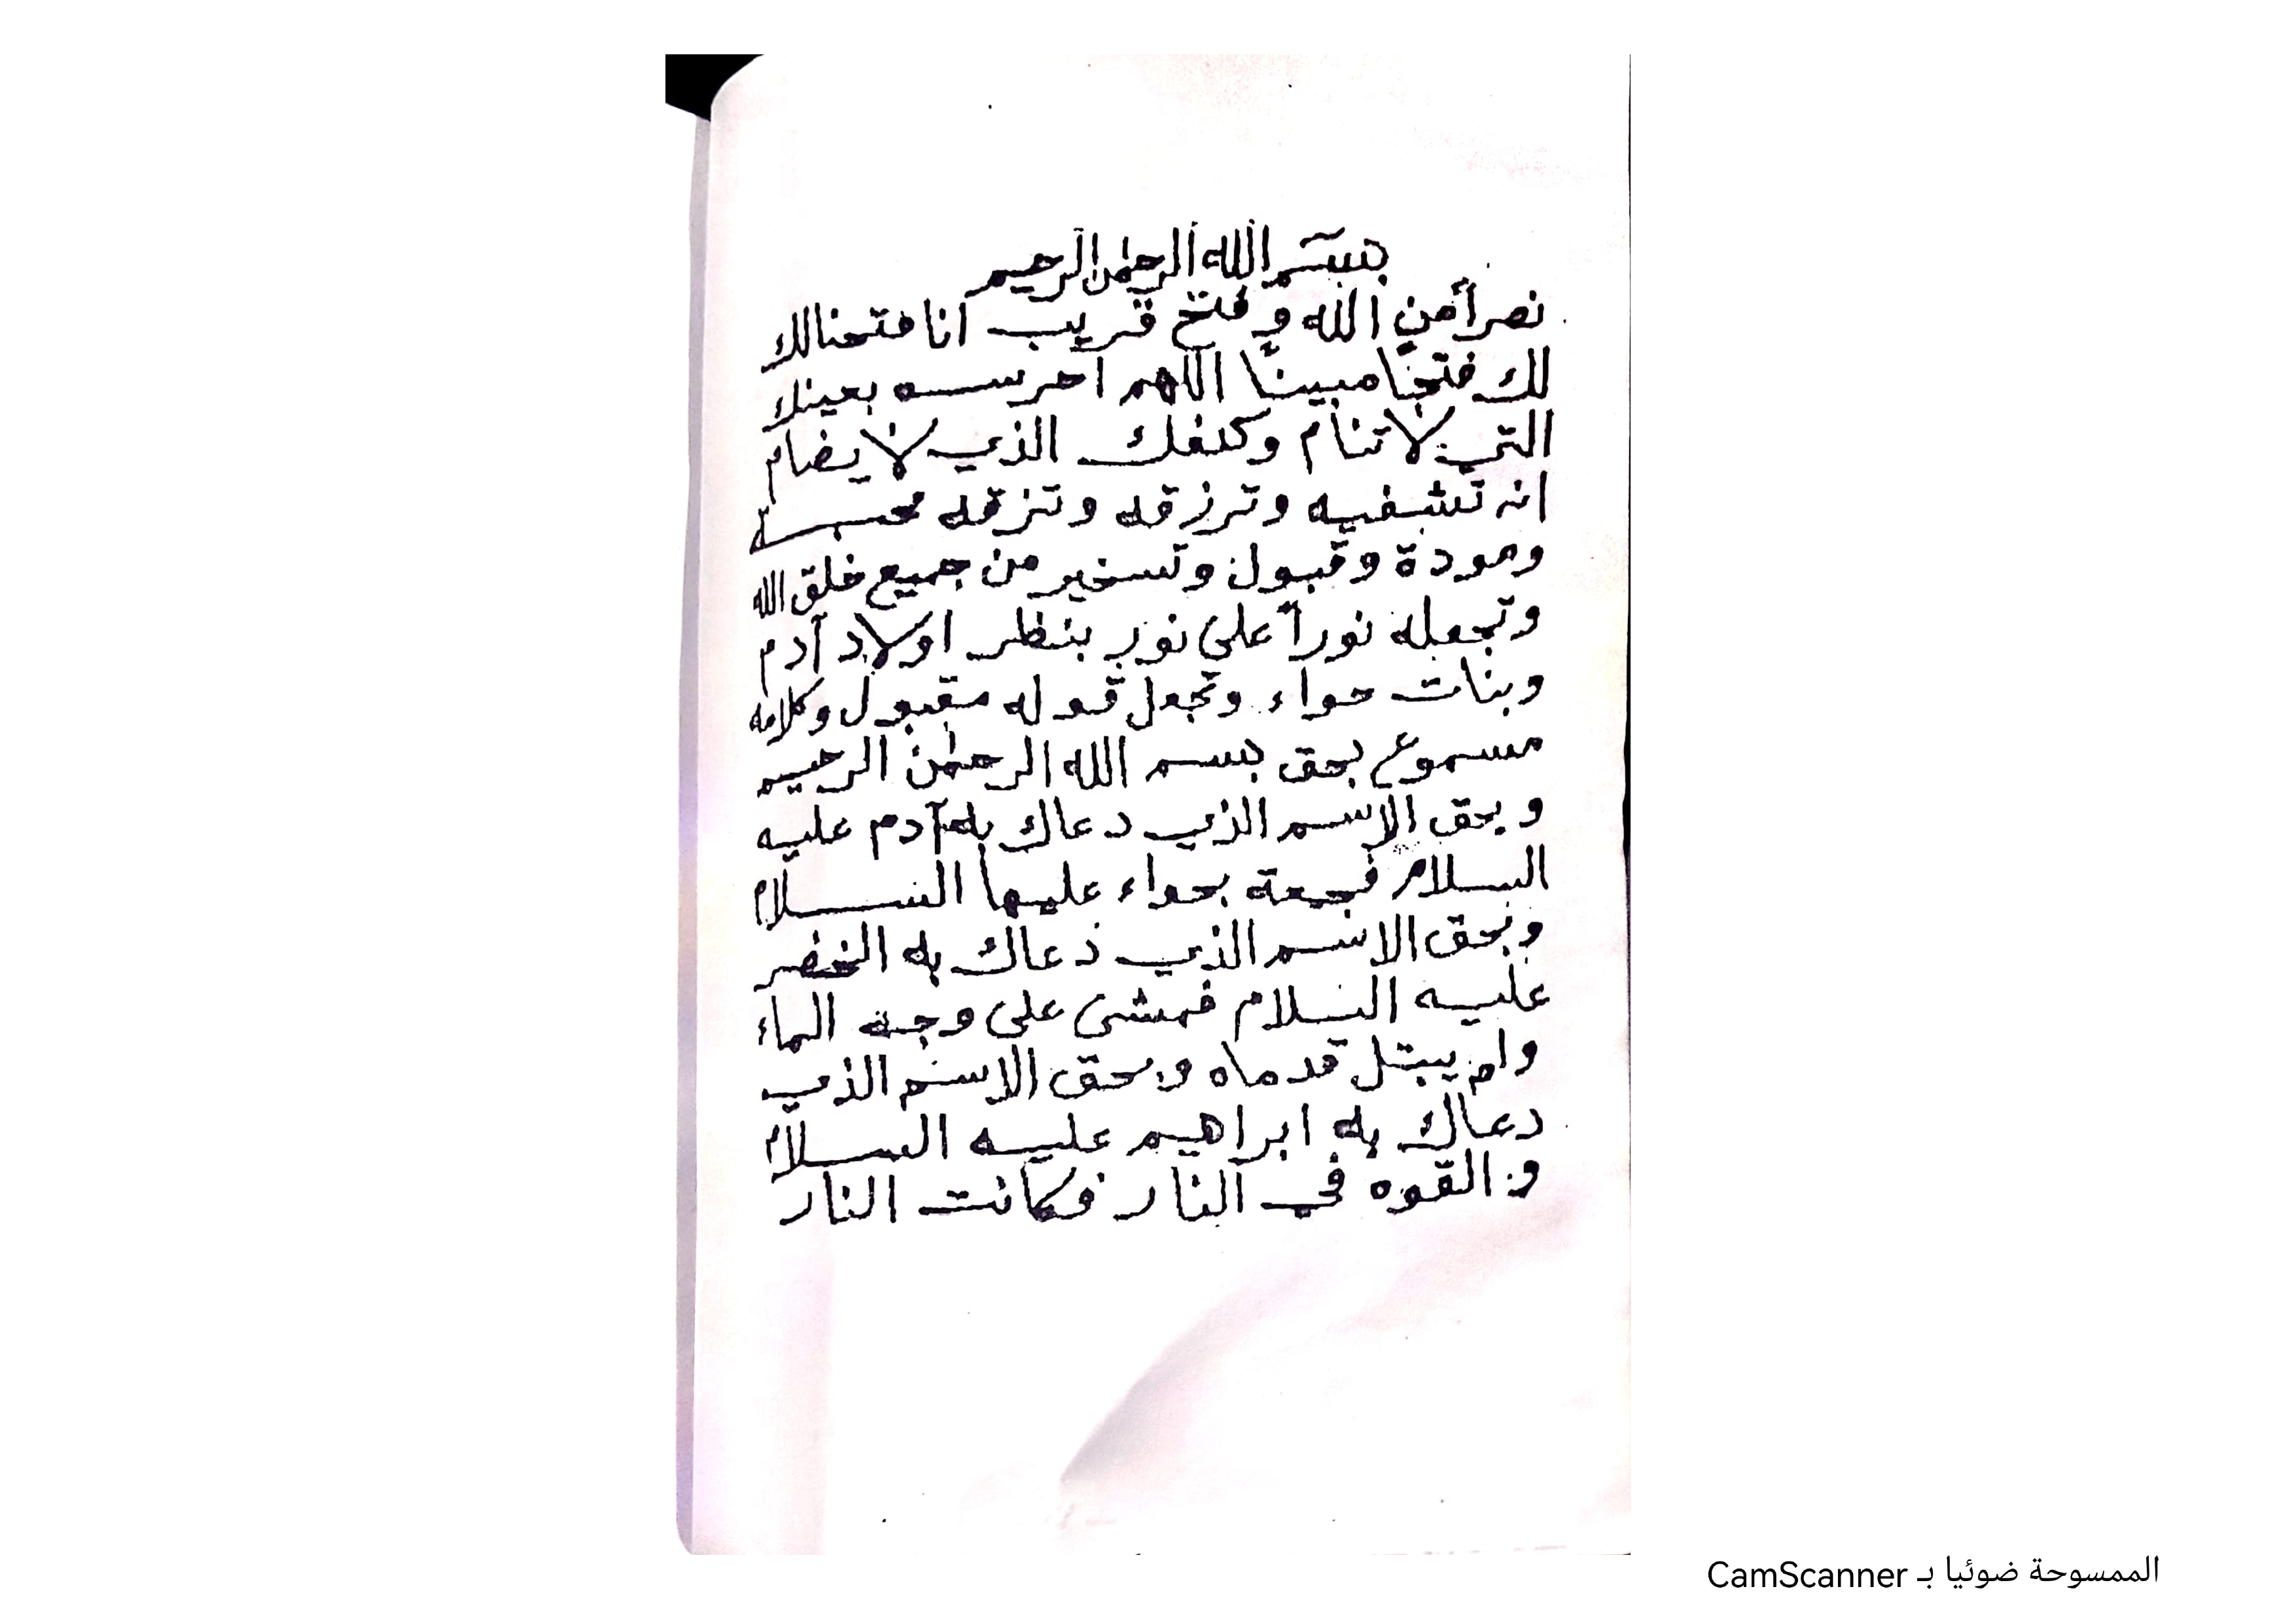 بسم الله الرحمن الرحيم
نصراً من الله وفتح قريب انا فتحنالك
لك فتحاً مبيناً اللهم احرسه بعينك
التي لا تنام وكنفك الذي لا يضام
انه تشفيه وترزقه وتزقه محبة
ومودة وقبول وتسخير من جميع خلق الله
وتجعله نوراً على نور بنظر اولاد آدم
وبنات حواء وتجعل قوله مقبول وكلامه
مسموع بحق بسم الله الرحمن الرحيم
وبحق الاسم الذي دعاك به آدم عليه
السلام فجمعة بحواء عليها السلام
وبحق الاسم الذي دعاك به الخضر
عليه السلام فمشى على وجه الماء
ولم يبتل قدماه وبحق الاسم الذي
دعاك به ابراهيم عليه السلام
و القوه في النار فكانت النار
الممسوحة ضوئيا بـ CamScanner